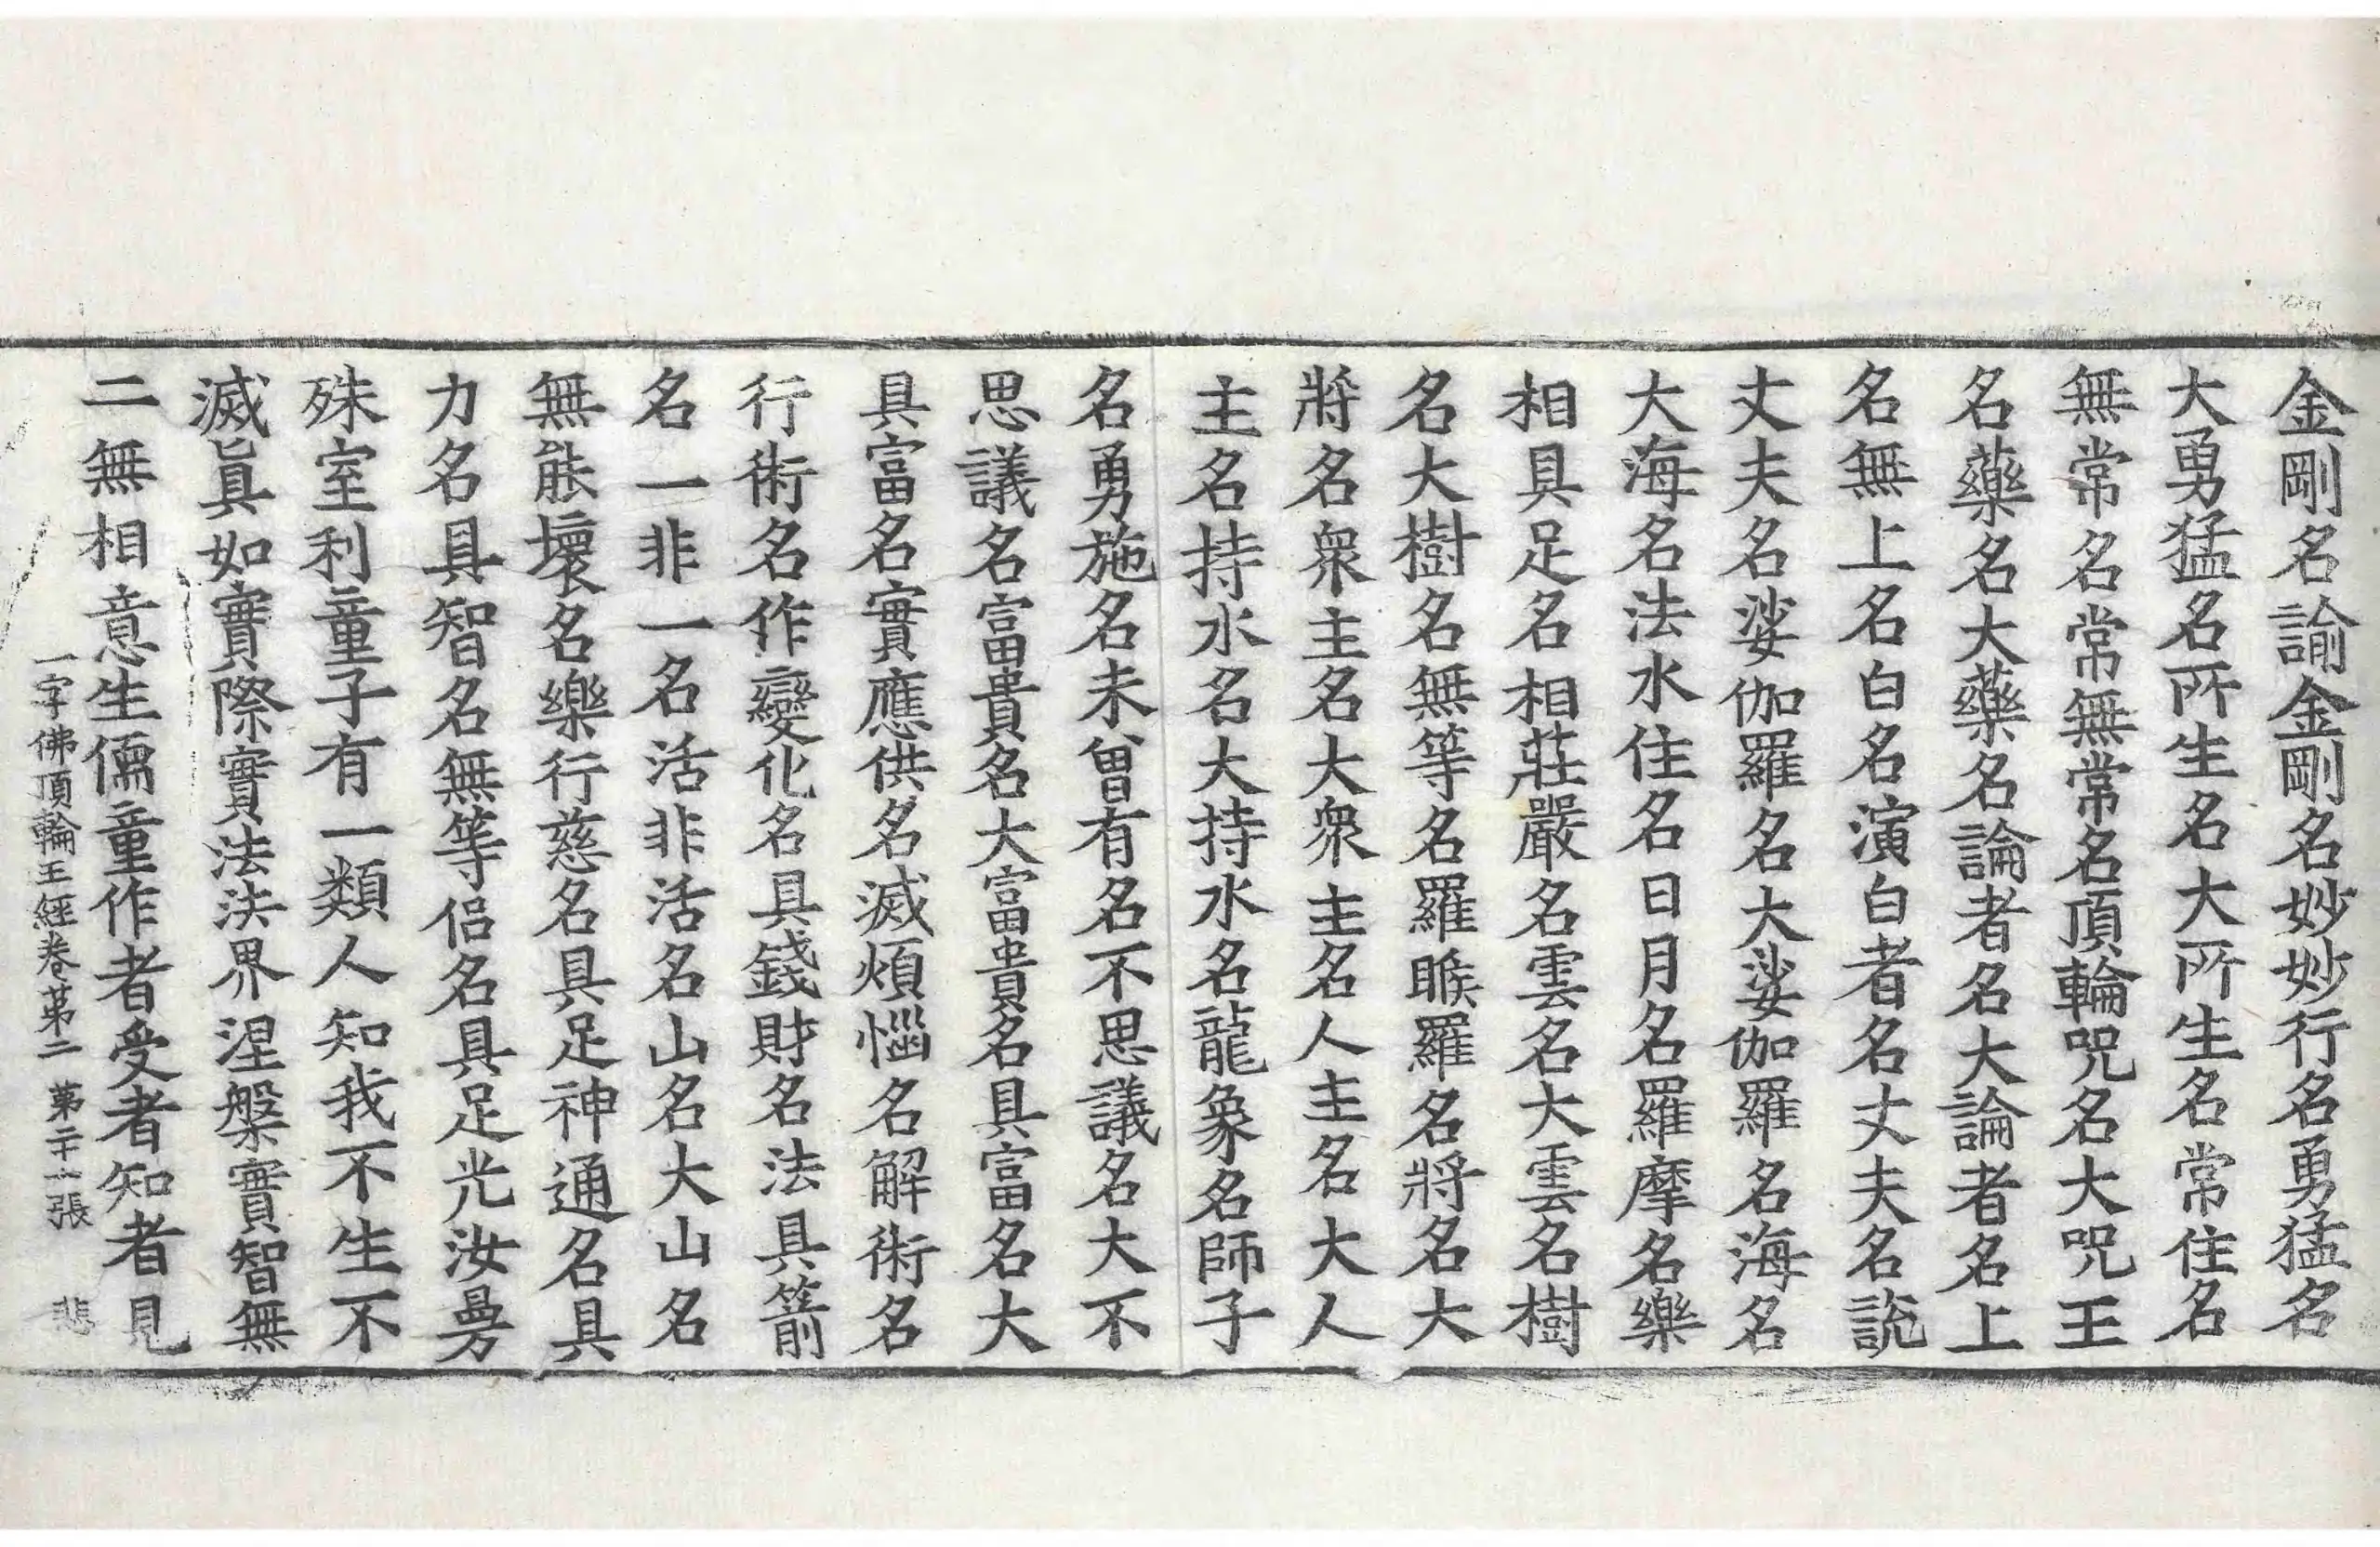 金剛名諭金剛名妙妙行名勇猛名
大勇猛名所生名大所生名常住名
無常名常無常名頂輪呪名大呪王
名藥名大藥名論者名大論者名上
名無上名白名演白者名丈夫名說
丈夫名娑伽羅名大娑伽羅名海名
大海名法水住名日月名羅摩名樂
相具足名相莊嚴名雲名大雲名樹
名大樹名無等名羅睺羅名將名大
將名衆主名大衆主名人主名大人
主名持水名大持水名龍象名師子
名勇施名未曾有名不思議名大不
思議名富貴名大富貴名具富名大
具富名實應供名滅煩惱名解術名
行術名作變化名具錢財名法具箭
名一非一名活非活名山名大山名
無能壞名樂行慈名具足神通名具
力名具智名無等侶名具足光汝曼
殊室利童子有一類人知我不生不
滅眞如實際實法法界涅槃實智無
二無相意生儒童作者受者知者見
一字佛頂輪王經卷第二 第二十張 悲